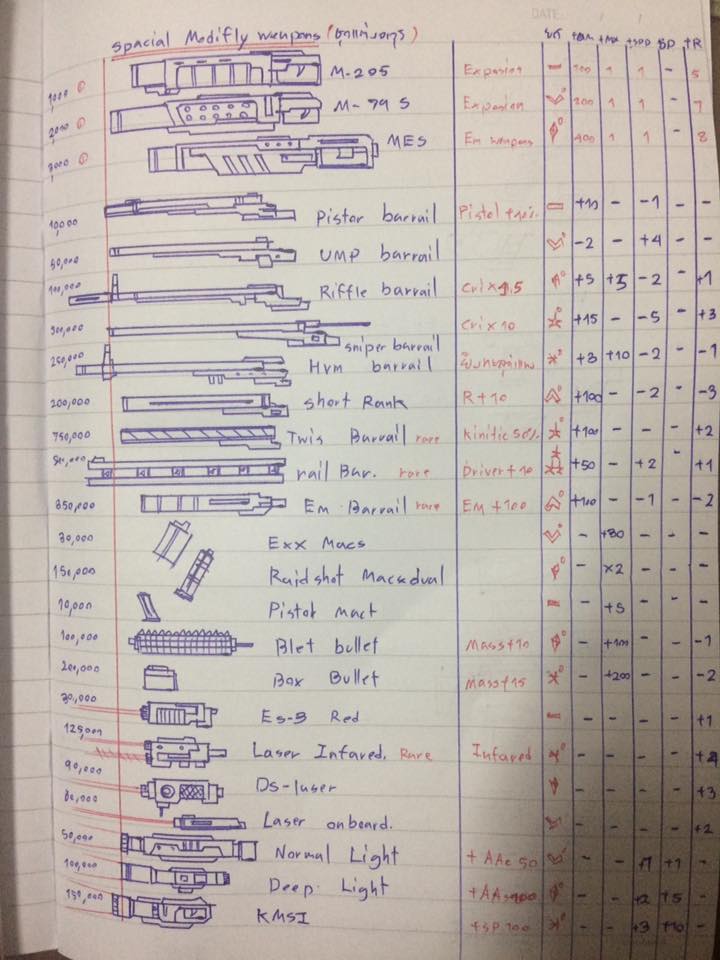 DATE / /
Spacial Modifly weapons
+Dm. +MX +SPD SP +R
1000 M-205 Expasion - 100 1 1 - 5
2000 M-79 S Expasion 200 1 1 - 7
3000 MES Em weapons 400 1 1 - 8
10,000 Pistor barrail Pistol +10 - -1 - -
50,000 UMP barrail -2 - +4 - -
100,000 Riffle barrail Cri x 1.5 +5 +5 -2 - +1
300,000 sniper barrail Cri x 10 +15 - -5 - +3
250,000 Hvm barrail +3 +10 -2 - -1
200,000 short Rank R+10 +100 - -2 - -3
750,000 Twis Barrail rare Kinitic 50% +100 - - - +2
rail Bar. rare Driver+10 +50 - +2 - +1
850,000 Em Barrail rare Em +100 +100 - -1 - -2
30,000 Exx Macs - +30 - - -
150,000 Raidshot Macsdual - x2 - - -
10,000 Pistol Mact - +5 - - -
100,000 Blet bullet Mass+10 - +100 - - -1
200,000 Box Bullet Mass+15 - +200 - - -2
30,000 Es-3 Red - - - - +1
125,000 Laser Infared. Rare Infared - - - - +4
90,000 Ds-luser - - - - +3
80,000 Laser onboard. - - - - +2
50,000 Normal Light + AAc 50 - - +1 +1 -
100,000 Deep Light +AA+100 - - +2 +5 -
150,000 KMSI +SP 100 - - +3 +10 -